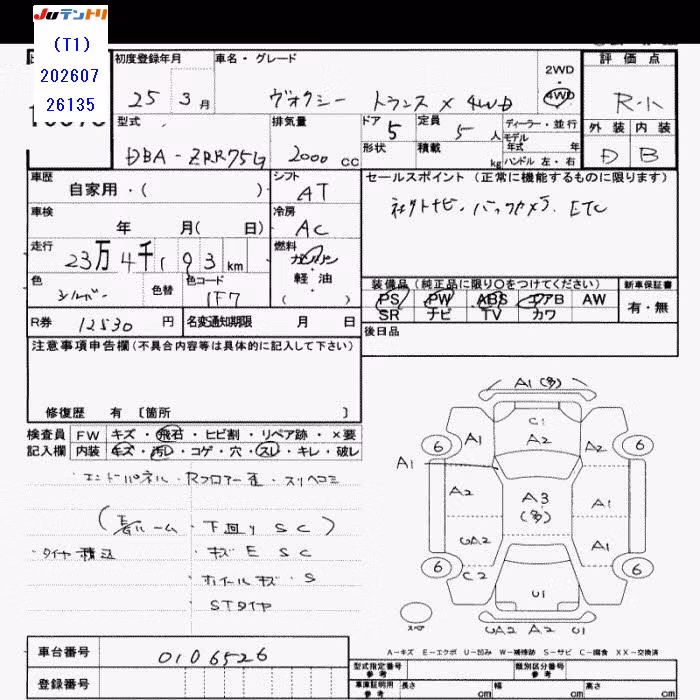 JUテントリ
(T1)
202607
26135
初度登録年月
25 3月
車名・グレード
ヴォクシー トランスX 4WD
2WD
4WD
評価点
R-1
外装 内装
D B
型式
DBA-ZRR75G
排気量
2000 cc
ドア 5
形状
定員 5人
積載 kg
ディーラー・並行
モデル年式 年
ハンドル 左・右
車歴
自家用・( )
シフト
AT
車検
年 月( 日)
冷房
AC
走行
23万4千193km
燃料
ガソリン
・
軽油
( )
色
シルバー
色替
色コード
1F7
R券 12530円
名変通知期限 月 日
セールスポイント (正常に機能するものに限ります)
社外ナビ・バックカメラ ETC
装備品(純正品に限り○をつけてください)
新車保証書
PS PW ABS エアB AW
有・無
SR ナビ TV カワ
後日品
注意事項申告欄(不具合内容等は具体的に記入して下さい)
修復歴 有 〔箇所 〕
検査員記入欄
FW キズ・飛石・ヒビ割・リペア跡・×要
内装 キズ・汚レ・コゲ・穴・スレ・キレ・破レ
エンドパネル・Rフロアー歪・スリヘコミ
下回り SC)
・タイヤ積込
・キズ E SC
・ホイールキズ・S
・STタイヤ
A1(多)
C1
A2
A1
A2
6
6
A1
A2
A3
(多)
A1
UA2
A1
6
6
C2
U1
スペア
UA2 A2 U1
A-キズ E-エクボ U-凹み W-補修跡 S-サビ C-腐食 XX-交換済
車台番号
0106526
登録番号
型式指定番号
参考
類別区分番号
参考
車庫証明用
参考
長さ cm
幅 cm
高さ cm